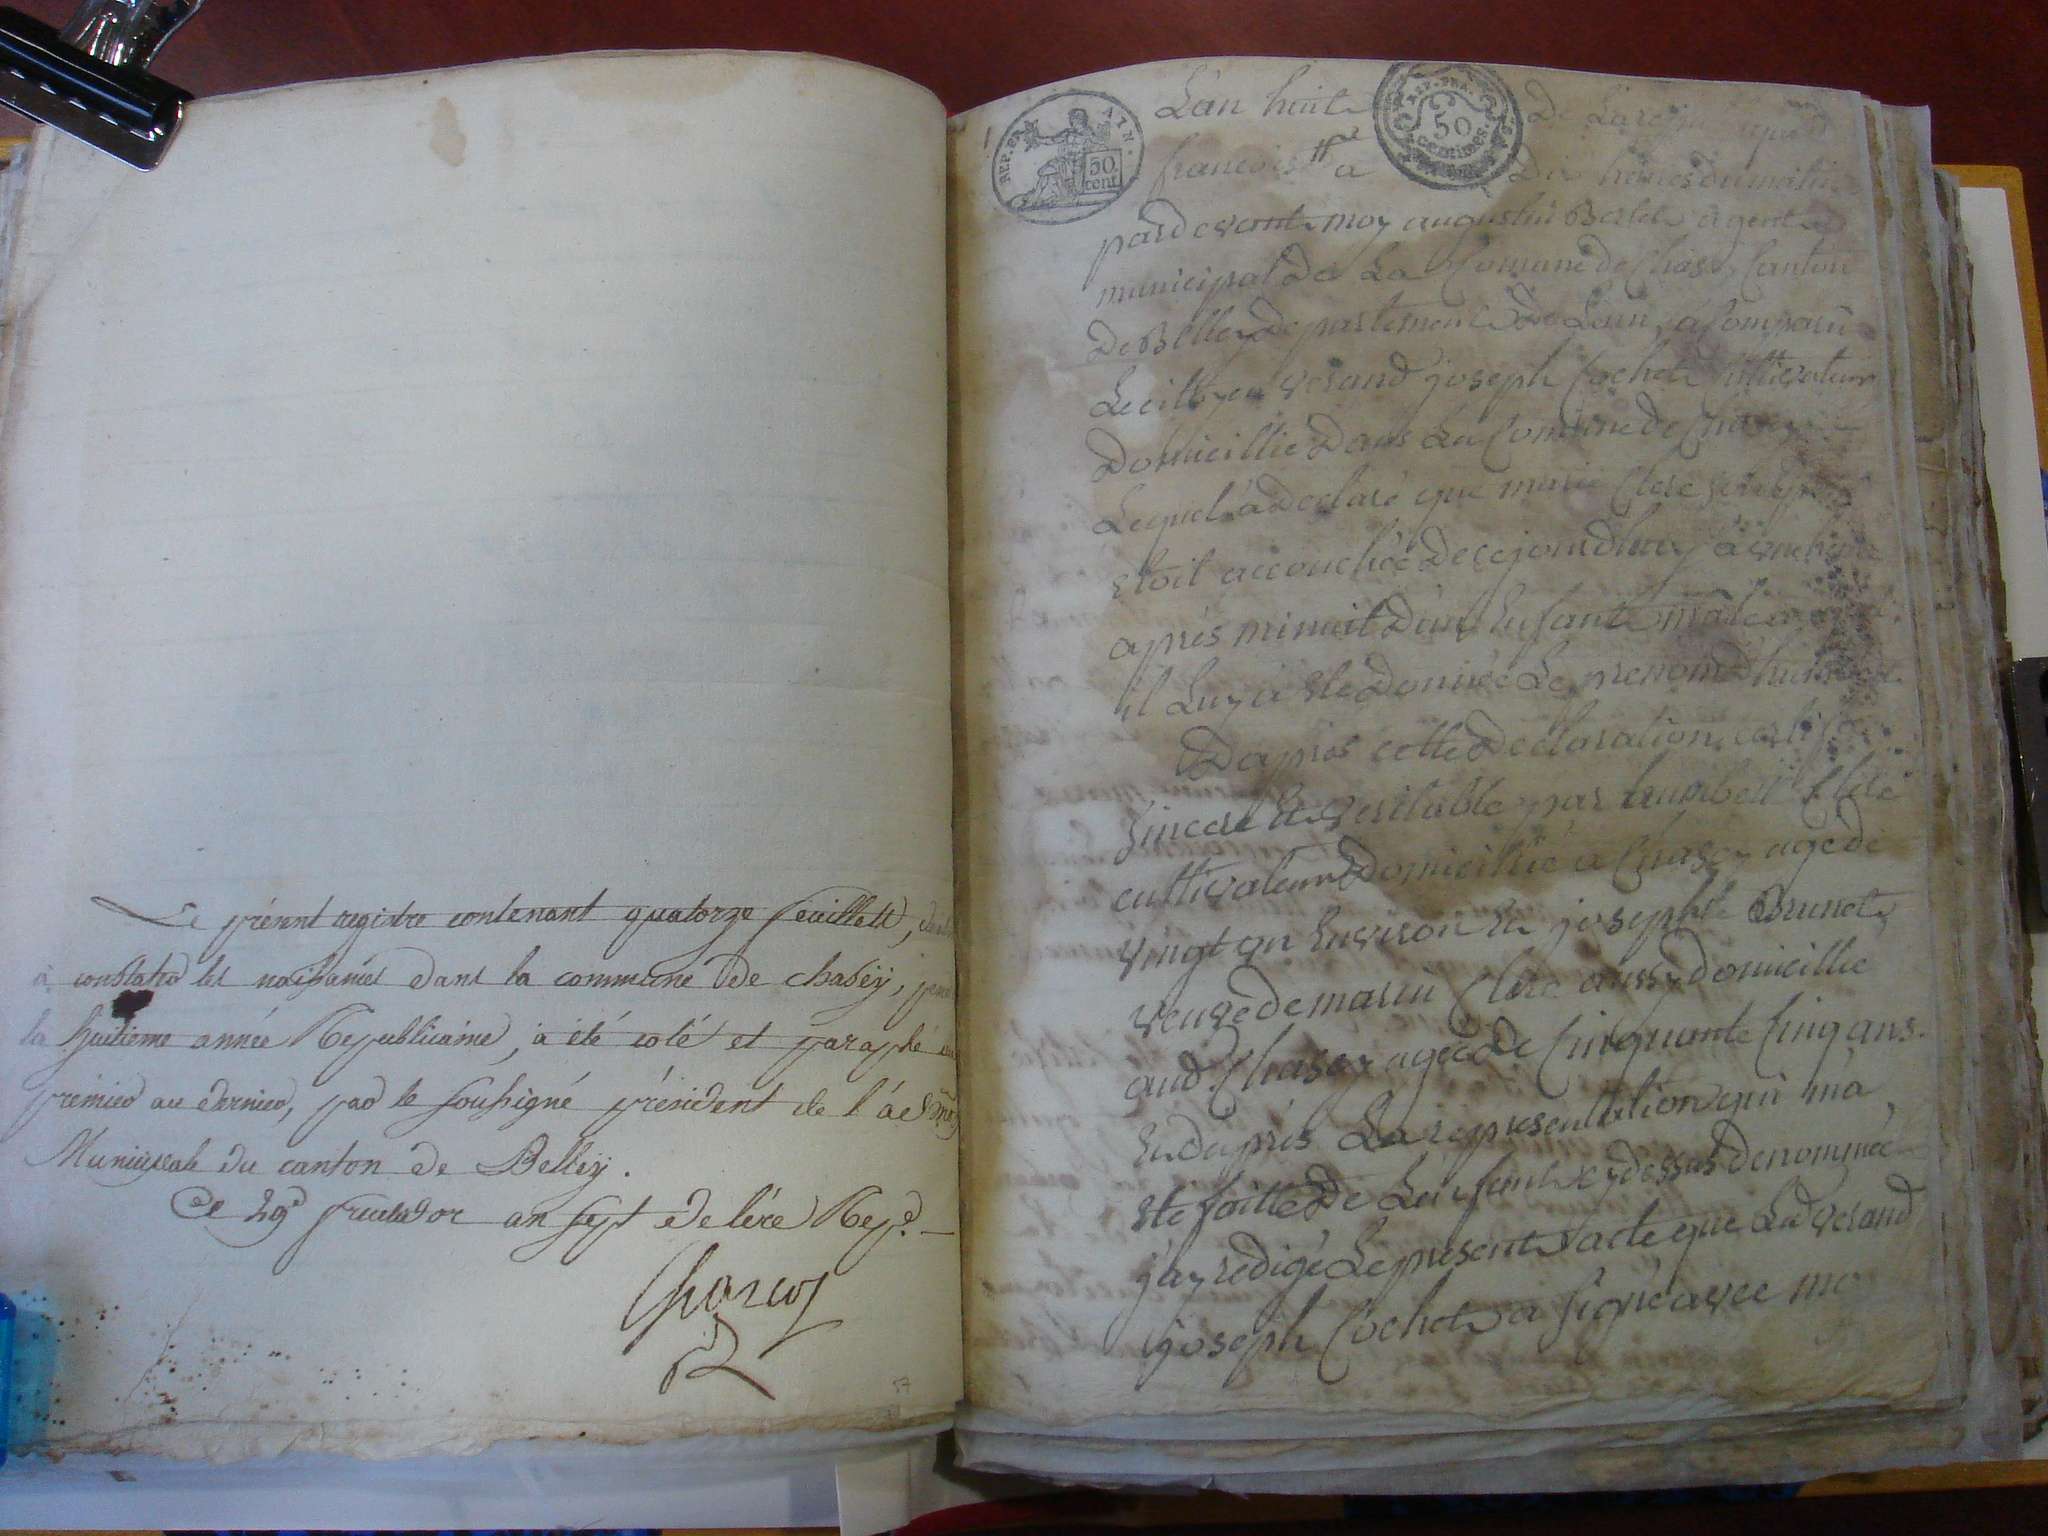 Le présent registre contenant quatorze feuillets,
à constater les naissances dans la commune de chasëy,
la huitieme année Republicaine, a été coté et paraphé
premier au dernier, par le soussigné président de l'adm.
Municipale du canton de Belley.
Ce 29e fructidor an sept de l'ère Rep.e
REP. FRA. AIN.
50 cent
REP. FRA.
50 centimes
L'an huit De La republique
francois a Dix heures du matin
pardevant moy augustin agent
municipal De La Comune de Chasey Canton
De Belley departement De Lain, à Comparu
Le citoyen verand joseph Cochet Cultivateur
Domicillie Dans La Comune de Chasey
Lequel à Declaré que marie Clere
etoit accouchée de ce jourdhuy à une heure
après minuit D'un Enfant male
il Luy a ete Donnée Le prenom
D'apres cette Declaration certifié
sincere Et veritable par humbert Clere
cultivateur Domicillié a Chasey agé de
vingt an Environ Et joseph Brunet
veuve de marin Clere aussy domicillie
aud Chasey agée De Cinquante Cinq ans.
Et dapres La representation qui m'a
ete faitte De Lenfant cydessus denommée
j'ay redigé Le present acte que Led verand
joseph Cochet a signé avec mo